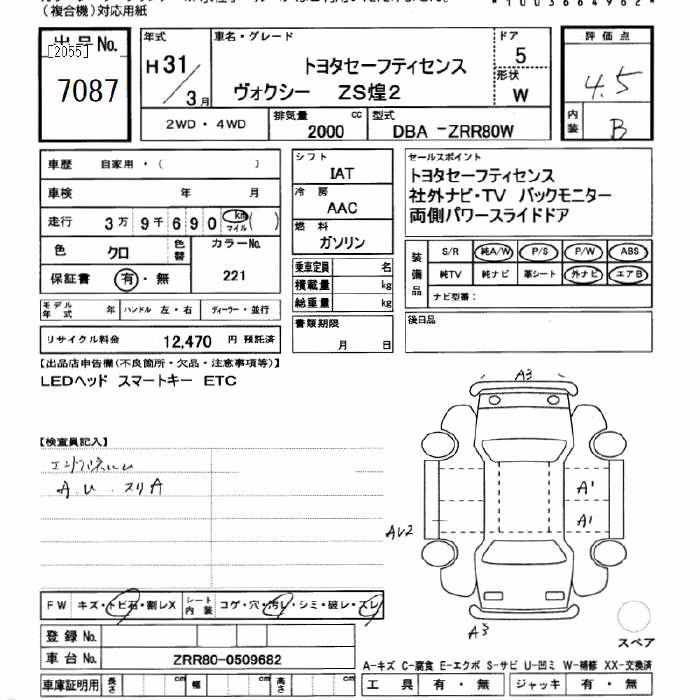 (複合機)対応用紙
*10036649 62*
出品No.
[2055]
7087
年式
H31/3月
車名・グレード
トヨタセーフティセンス
ヴォクシー ZS煌2
ドア
5
形状
W
2WD・4WD
排気量
2000 cc
型式
DBA -ZRR80W
評価点
4.5
内装
B
車歴 自家用・( )
車検 年 月
走行 3万9千690 km マイル ( )
色 クロ
色替
カラーNo.
221
保証書 有・無
モデル年式 年 ハンドル 左・右 ディーラー・並行
リサイクル料金 12,470 円 預託済
シフト
IAT
冷房
AAC
燃料
ガソリン
乗車定員 名
積載量 kg
給重量 kg
書類期限
月 日
セールスポイント
トヨタセーフティセンス
社外ナビ・TV バックモニター
両側パワースライドドア
装備品
S/R 純A/W P/S P/W ABS
純TV 純ナビ 革シート 外ナビ エアB
ナビ型番:
後日品
【出品店申告欄(不良箇所・欠品・注意事項等)】
LEDヘッド スマートキー ETC
【検査員記入】
A.U スリA
A3
A1
A1
AU2
A3
スペア
FW キズ・トビ石・割レX
シート内装 コゲ・穴・汚レ・シミ・破レ・スレ
登録No.
車台No. ZRR80-0509682
車庫証明用 長さ cm 幅 cm 高さ cm
A-キズ C-腐食 E-エクボ S-サビ U-凹ミ W-補修 XX-交換済
工具 有・無 ジャッキ 有・無